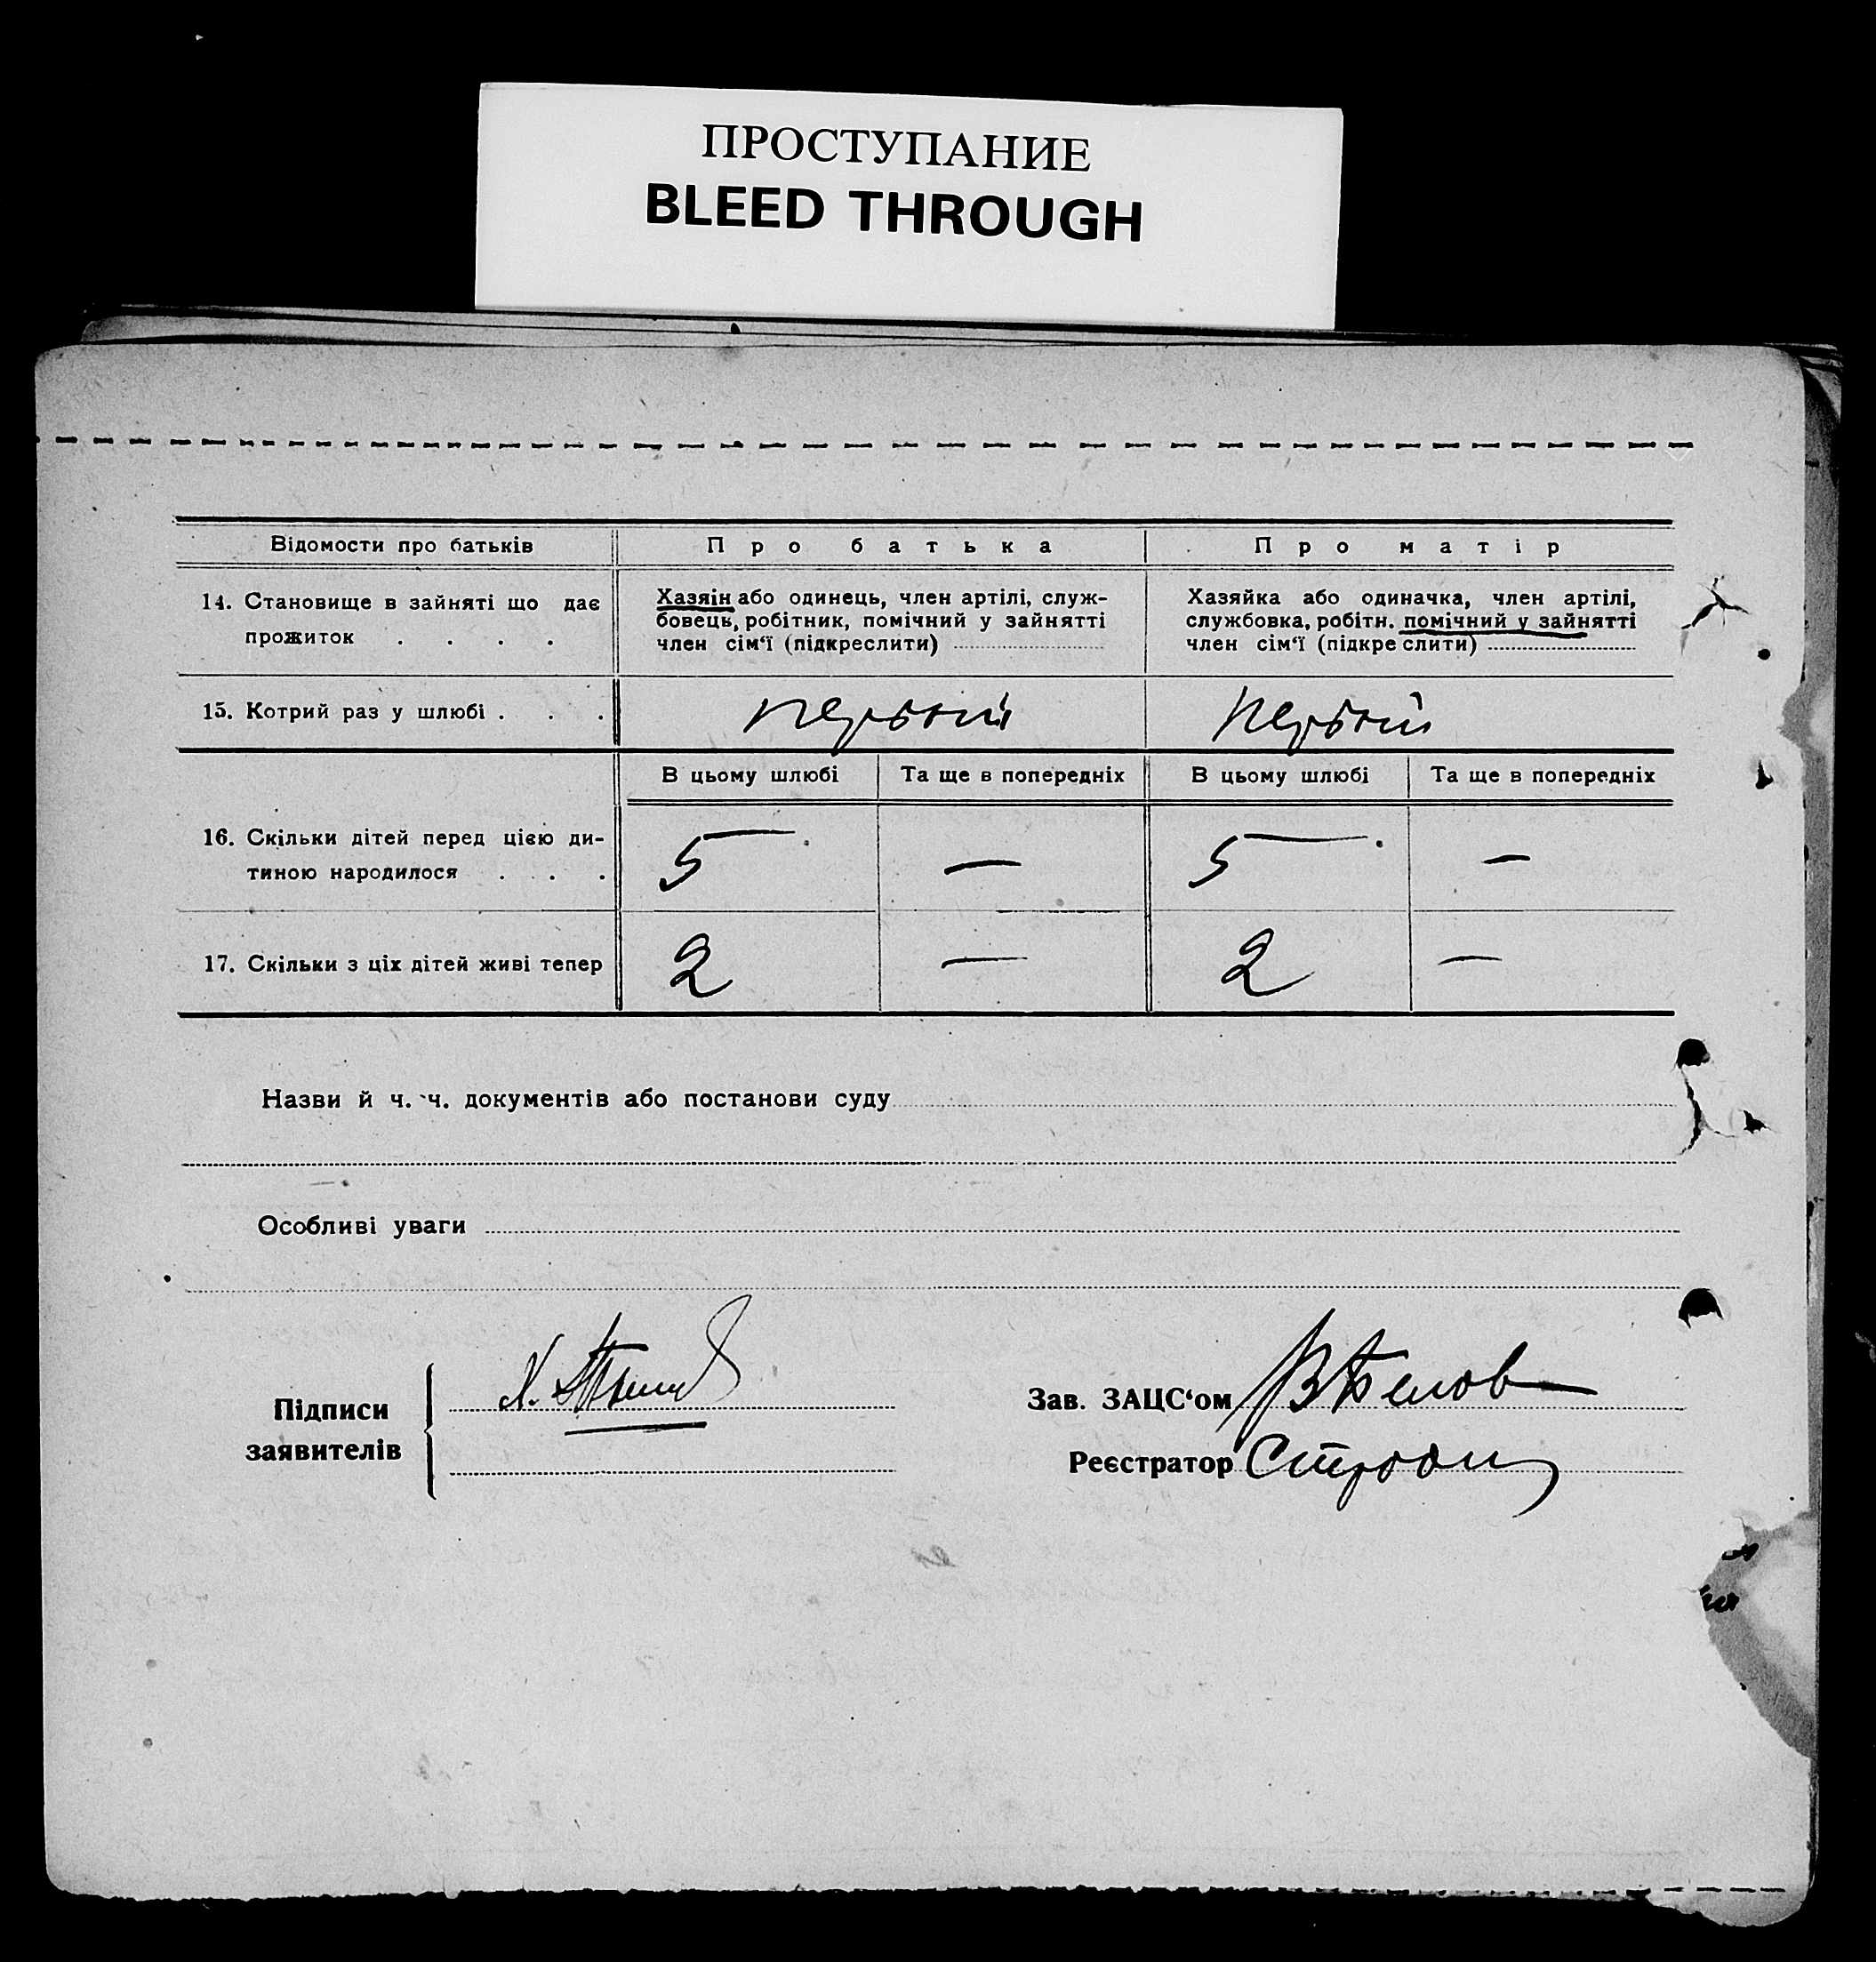 ПРОСТУПАНИЕ
BLEED THROUGH
Відомости про батьків
Про батька
Про матір
14. Становище в зайняті що дає
прожиток . . . .
Хазяін або одинець, член артілі, служ-
бовець, робітник, помічний у зайнятті
член сім‘ї (підкреслити)
Хазяйка або одиначка, член артілі,
службовка, робітн. помічний у зайнятті
член сім‘ї (підкреслити)
15. Котрий раз у шлюбі . . .
первый
первый
В цьому шлюбі
Та ще в попередніх
В цьому шлюбі
Та ще в попередніх
16. Скільки дітей перед цією ди-
тиною народилося . . .
5
—
5
—
17. Скільки з ціх дітей живі тепер
2
—
2
—
Назви й ч. ч. документів або постанови суду
Особливі уваги
Підписи
заявителів
Зав. ЗАЦС‘ом
Реєстратор